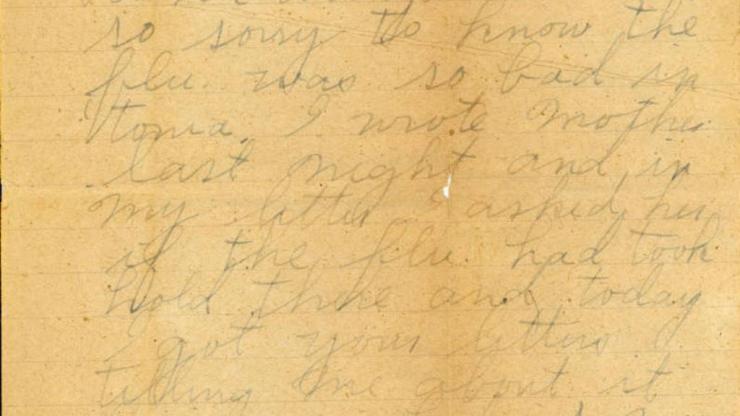 so sorry to know the
flu was so bad in
tonia. I wrote Mother
last night and in
my letter I asked her
if the flu had took
hold there and today
I got your letters
telling me about it